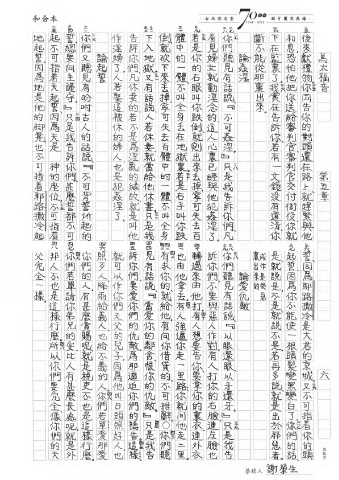 和合本
馬太福音　第五章　六
後來獻禮物你同告你的對頭還在路上就趕緊與他
和息恐怕他把你送給審判官審判官交付衙役你就
下在監裏了我實在告訴你若有一文錢沒有還清你
斷不能從那裏出來
論姦淫
你們聽見有話說『不可姦淫』只是我告訴你們凡
看見婦女就動淫念的這人心裏已經與他犯姦淫了
若是你的右眼叫你跌倒就剜出來丟掉寧可失去百
體中的一體不叫全身丟在地獄裏若是右手叫你跌
倒就砍下來丟掉寧可失去百體中的一體不叫全身
下入地獄又有話說人若休妻就當給他休書只是我
告訴你們凡休妻的若不是為淫亂的緣故就是叫他
作淫婦了人若娶這被休的婦人也是犯姦淫了
論起誓
你們又聽見有吩咐古人的話說『不可背誓所起的
誓總要向主謹守』只是我告訴你們甚麼誓都不可
起不可指著天起誓因為天是　神的座位不可指著
地起誓因為地是他的腳凳也不可指著耶路撒冷起
誓因為耶路撒冷是大君的京城又不可指著你的頭
起誓因為你不能使一根頭髮變黑變白了你們的話
是就說是不是就說不是若再多說就是出於那惡者
論愛仇敵
你們聽見有話說『以眼還眼以牙還牙』只是我告
訴你們不要與惡人作對有人打你的右臉連左臉也
轉過來由他打有人想要告你要拿你的裏衣連外衣
也由他拿去有人強逼你走一里路你就同他走二里
有求你的就給他有向你借貸的不可推辭你們聽
見有話說『當愛你的鄰舍恨你的仇敵』只是我告
訴你們要愛你們的仇敵為那逼迫你們的禱告這樣
就可以作你們天父的兒子因為他叫日頭照好人也
照歹人降雨給義人也給不義的人你們若單愛那愛
你們的人有甚麼賞賜呢就是稅吏不也是這樣行麼
你們若單請你弟兄的安比人有甚麼長處呢就是外
邦人不也是這樣行麼所以你們要完全像你們的天
父完全一樣
謝榮生